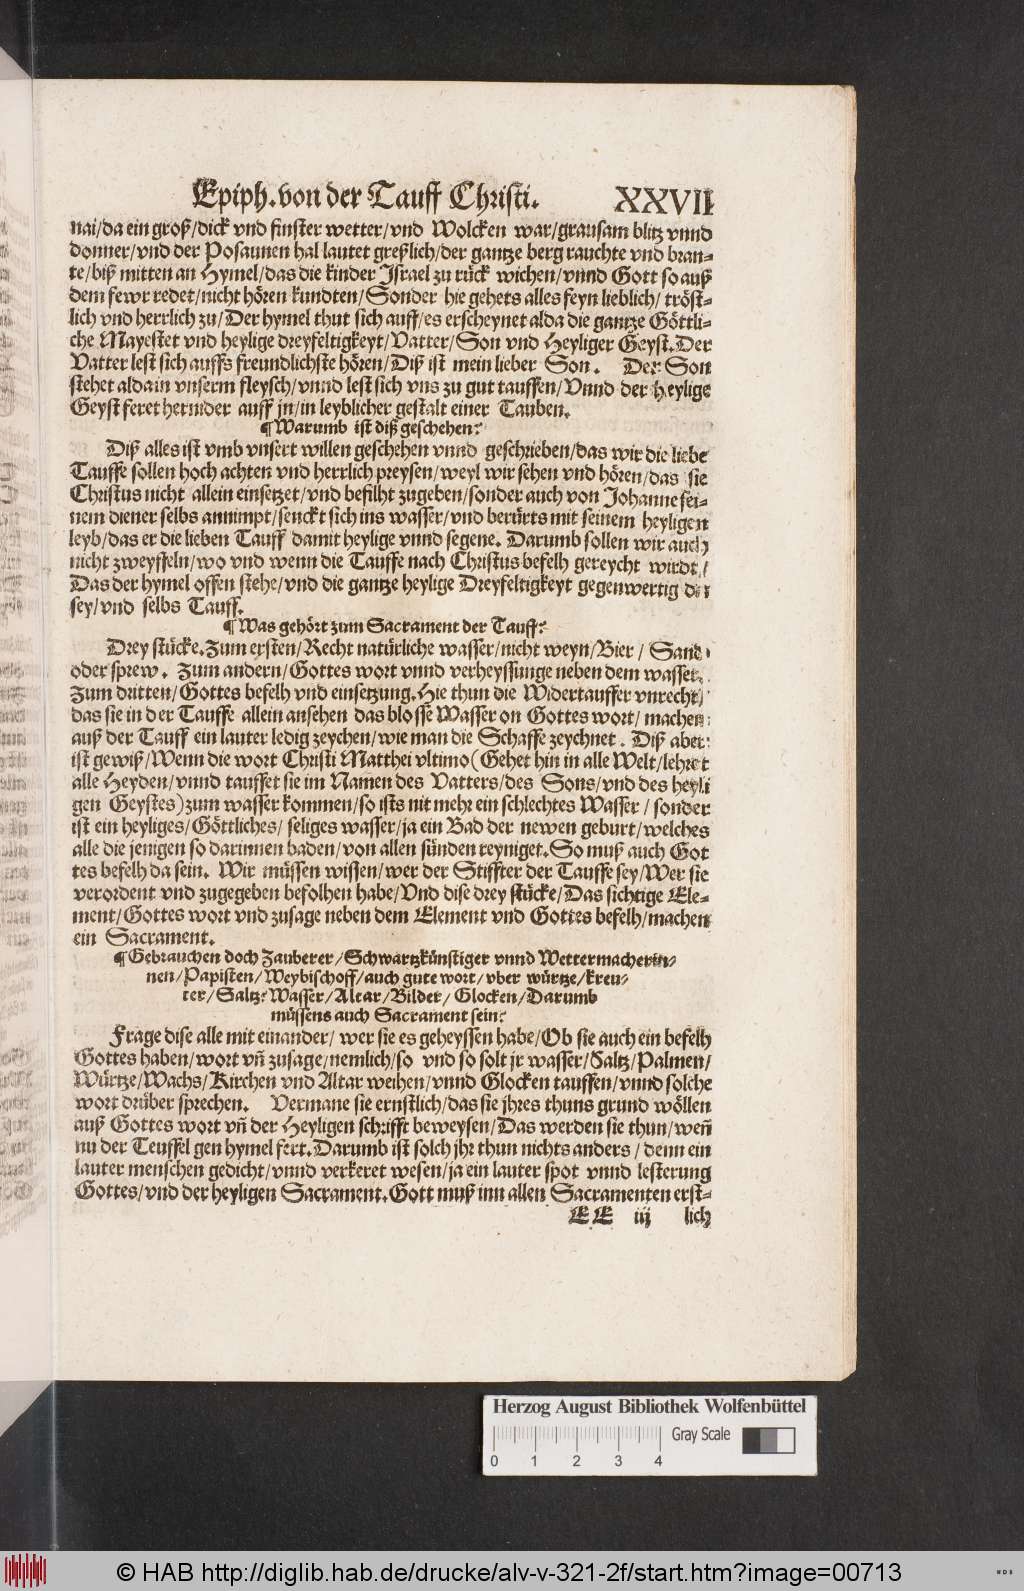 Epiph. von der Tauff Christi. XXVII
nai/da ein groß/dick vnd finster wetter/vnd Wolcken war/grausam blitz vnnd
donner/vnd der Posaunen hal lautet greßlich/der gantze berg rauchte vnd bran-
te/biß mitten an Hymel/das die kinder Israel zu rück wichen/vnnd Gott so auß
dem fewr redet/nicht hören kundten/Sonder hie gehets alles feyn lieblich/ tröst-
lich vnd herrlich zu/Der hymel thut sich auff/es erscheynet alda die gantze Göttli-
che Mayestet vnd heylige dreyfeltigkeyt/Vatter/Son vnd Heyliger Geyst. Der
Vatter lest sich auffs freundlichste hören/Diß ist mein lieber Son. Der Son
stehet alda in vnserm fleysch/vnnd lest sich vns zu gut tauffen/Vnnd der heylige
Geyst feret hernider auff jn/in leyblicher gestalt einer Tauben.
¶ Warumb ist diß geschehen?
Diß alles ist vmb vnsert willen geschehen vnnd geschrieben/das wir die liebe
Tauffe sollen hoch achten vnd herrlich preysen/weyl wir sehen vnd hören/das sie
Christus nicht allein einsetzet/vnd befilht zugeben/sonder auch von Johanne sei-
nem diener selbs annimpt/senckt sich ins wasser/vnd berürts mit seinem heyligen
leyb/das er die lieben Tauff damit heylige vnnd segene. Darumb sollen wir auch
nicht zweyffeln/wo vnd wenn die Tauffe nach Christus befelh gereycht wirdt/
Das der hymel offen stehe/vnd die gantze heylige Dreyfeltigkeyt gegenwertig da
sey/vnd selbs Tauff.
¶ Was gehört zum Sacrament der Tauff?
Drey stücke. Zum ersten/Recht natürliche wasser/nicht weyn/Bier/ Sand
oder sprew. Zum andern/Gottes wort vnnd verheyssunge neben dem wasser.
Zum dritten/Gottes befelh vnd einsetzung. Hie thun die Widertauffer vnrecht/
das sie in der Tauffe allein ansehen das blosse Wasser on Gottes wort/ machen
auß der Tauff ein lauter ledig zeychen/wie man die Schaffe zeychnet. Diß aber
ist gewiß/Wenn die wort Christi Matthei vltimo (Gehet hin in alle Welt/lehret
alle Heyden/vnnd tauffet sie im Namen des Vatters/des Sons/vnd des heyli
gen Geystes) zum wasser kommen/so ists nit mehr ein schlechtes Wasser/ sonder
ist ein heyliges/Göttliches/ seliges wasser/ja ein Bad der newen geburt/welches
alle die jenigen so darinnen baden/von allen sünden reyniget. So muß auch Got
tes befelh da sein. Wir müssen wissen/wer der Stiffter der Tauffe sey/Wer sie
verordent vnd zugegeben befolhen habe/Vnd dise drey stücke/Das sichtige Ele-
ment/Gottes wort vnd zusage neben dem Element vnd Gottes befelh/machen
ein Sacrament.
¶ Gebrauchen doch Zauberer/Schwartzkünstiger vnnd Wettermacherin-
nen/Papisten/Weybischoff/auch gute wort/vber würtze/kreu-
ter/Saltz/Wasser/Altar/Bilder/ Glocken/Darumb
müssens auch Sacrament sein?
Frage dise alle mit einander/wer sie es geheyssen habe/Ob sie auch ein befelh
Gottes haben/wort vñ zusage/nemlich/so vnd so solt jr wasser/Saltz/Palmen/
Würtze/Wachs/Kirchen vnd Altar weihen/vnnd Glocken tauffen/vnnd solche
wort drüber sprechen. Vermane sie ernstlich/das sie jhres thuns grund wöllen
auß Gottes wort vñ der Heyligen schrifft beweysen/Das werden sie thun/weñ
nu der Teuffel gen hymel fert. Darumb ist solch jhr thun nichts anders/ denn ein
lauter menschen gedicht/vnnd verkeret wesen/ja ein lauter spot vnnd lesterung
Gottes/vnd der heyligen Sacrament. Gott muß inn allen Sacramenten erst-
EE iij lich
Herzog August Bibliothek Wolfenbüttel
Gray Scale
0 1 2 3 4
© HAB http://diglib.hab.de/drucke/alv-v-321-2f/start.htm?image=00713